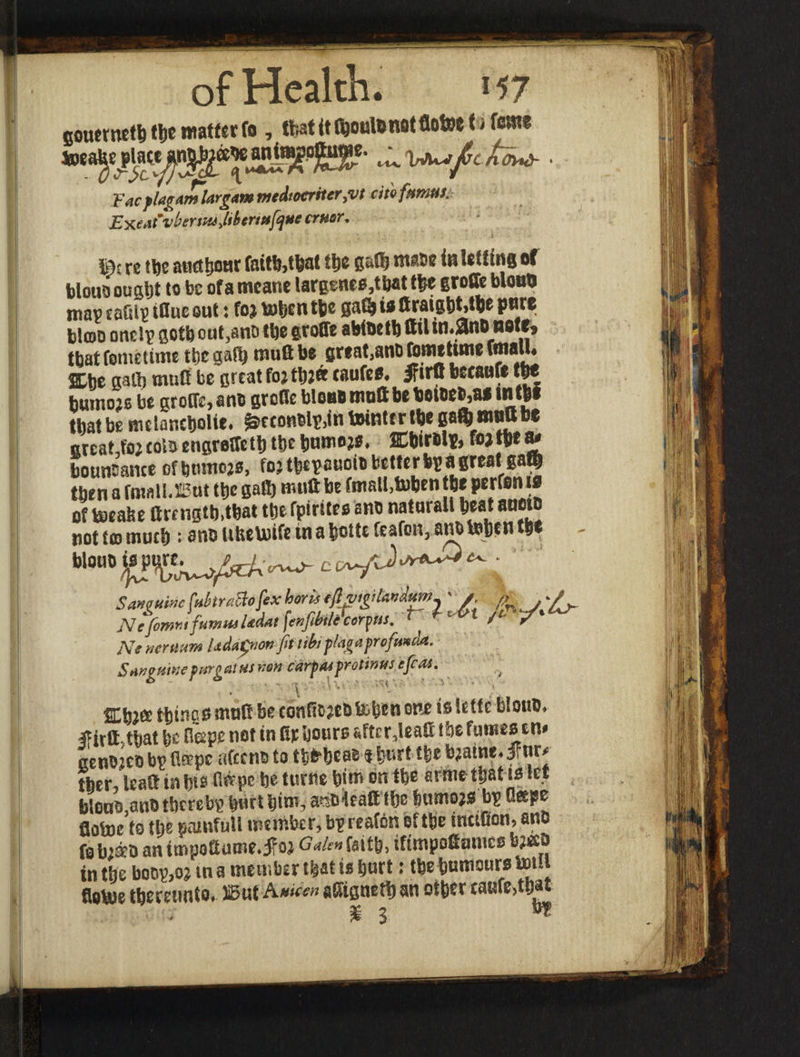 of Health. 157
gouerneth the matter so , that it should not flowe to some
weake place and bréede an impostume.
Fac plagam largam mediocriter,vt cito fumus.
Exeat vberius,liberiusque cruor.
Here the aucthour saith,that the gash made in letting of
bloud ought to be of a meane largenes,that the grosse bloud
may easily issue out : for when the gash is straight,the pure
blood onely goth out,and the grosse abideth stil in.And note,
that sometime the gash must be great,and sometime small.
The gash must be great for thrée causes. First because the
humors be grosse, and grosse bloud must be voided,as in thē
that be melancholie. Secondly,in winter the gash must be
great,for cold engrosseth the humors. Thirdly, for the a-
boundance of humors, for they auoid better by a great gash
then a small.But the gash must be small,when the person is
of weake strength,that the spirites and naturall heat auoid
not too much : and likewise in a hotte season, and when the
bloud is pure.
Sanguine subtracto sex horis est vigilandum,
Ne somni fumus lædat sensibile corpus.
Ne neruum lædat,non sit tibi plaga profunda.
Sanguine purgatus non carpas protinus escas.
Thrée things must be considred when one is lette bloud.
First,that he sléepe not in six hours after,least the fumes en-
gendred by sléepe ascend to the head & hurt the braine. Fur-
ther, least in his sléepe he turne him on the arme that is let
bloud,and thereby hurt him, and least the humors by sléepe
flowe to the painfull member, by reason of the incision, and
so bréed an impostume.For Galen saith, if impostumes bréed
in the body,or in a member that is hurt : the humours will
flowe thereunto. But Auicen assigneth an other cause,that
X 3 by